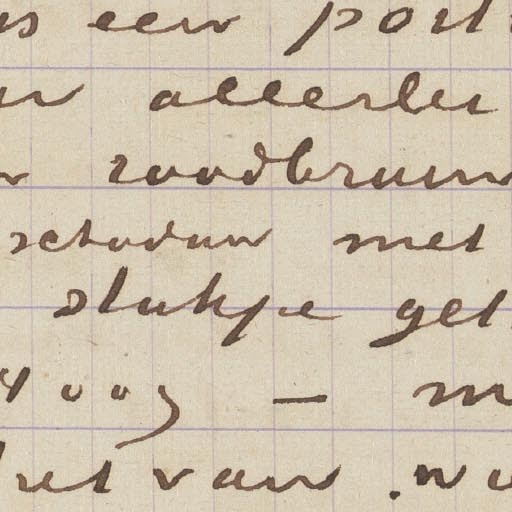 s een port
allerlei
roodbruin
schaduw met
stukje gel
oog — m
het van.